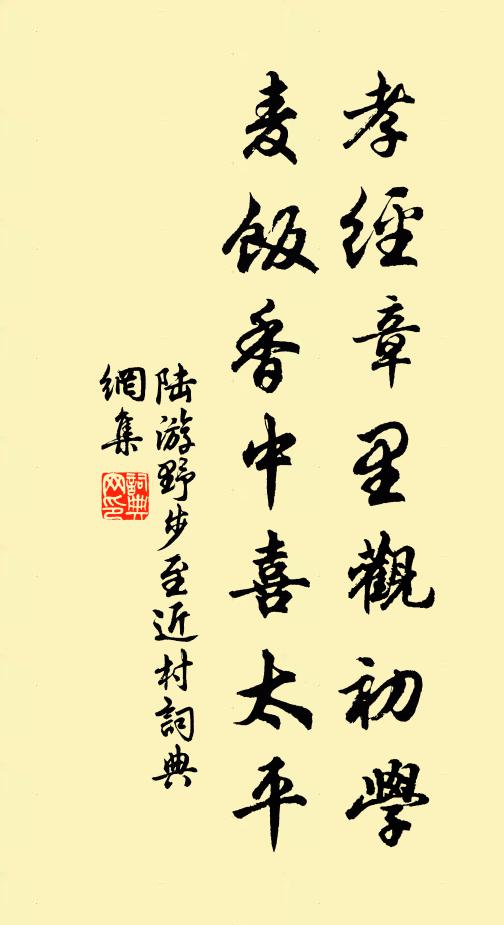 孝經章里觀初學
麦飯香中喜太平
陆游野步至近村詞典
網集
詞典
网印